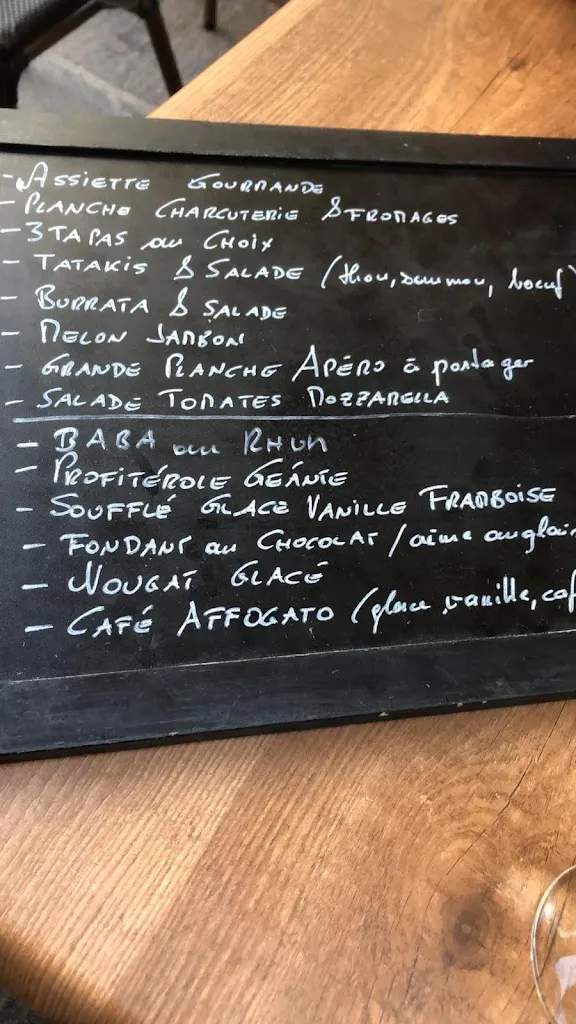 - ASSIETTE GOURMANDE
- PLANCHE CHARCUTERIE & FROMAGES
- 3 TAPAS au CHOIX
- TATAKIS & SALADE (thon, saumon, boeuf)
- BURRATA & SALADE
- MELON JAMBON
- GRANDE PLANCHE APÉRO à partager
- SALADE TOMATES MOZZARELLA
- BABA au RHUM
- PROFITÉROLE GÉANTE
- SOUFFLÉ GLACE VANILLE FRAMBOISE
- FONDANT au CHOCOLAT /
- NOUGAT GLACÉ
- CAFÉ AFFOGATO (glace vanille, caf